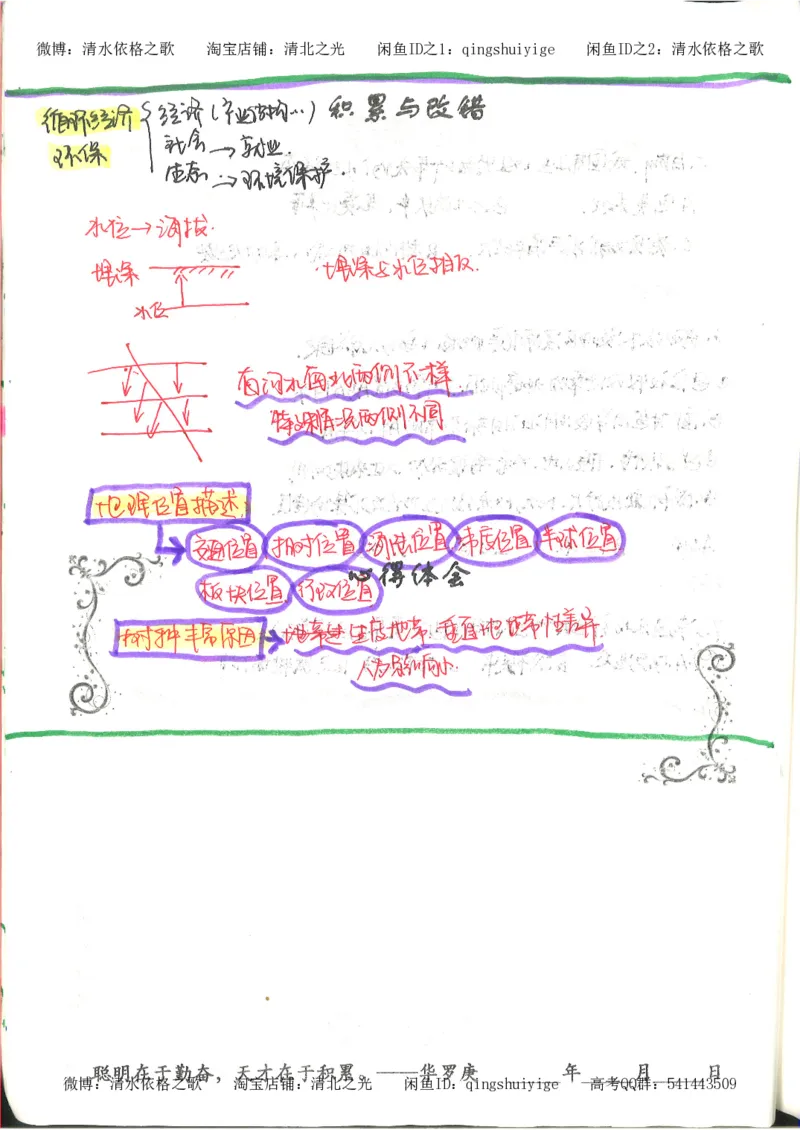 微博：清水依格之歌 淘宝店铺：清北之光 闲鱼ID之1：qingshuiyige 闲鱼ID之2：清水依格之歌
积累与改错
循环经济 经济（产业结构…）
环保 社会→就业.
生态→环境保护.
水位→海拔.
埋深 ·埋深与水位相反.
水位
看河水自北两侧不一样
特殊情况两侧不同
地理位置描述
交通位置 相对位置 海陆位置 纬度位置 半球位置
板块位置 行政位置
心得体会
树种丰富原因 垂直地带性差异
人为影响小.
聪明在于勤奋，天才在于积累。——华罗庚 年 月 日
微博：清水依格之歌 淘宝店铺：清北之光 闲鱼ID：qingshuiyige 高考QQ群：541443509